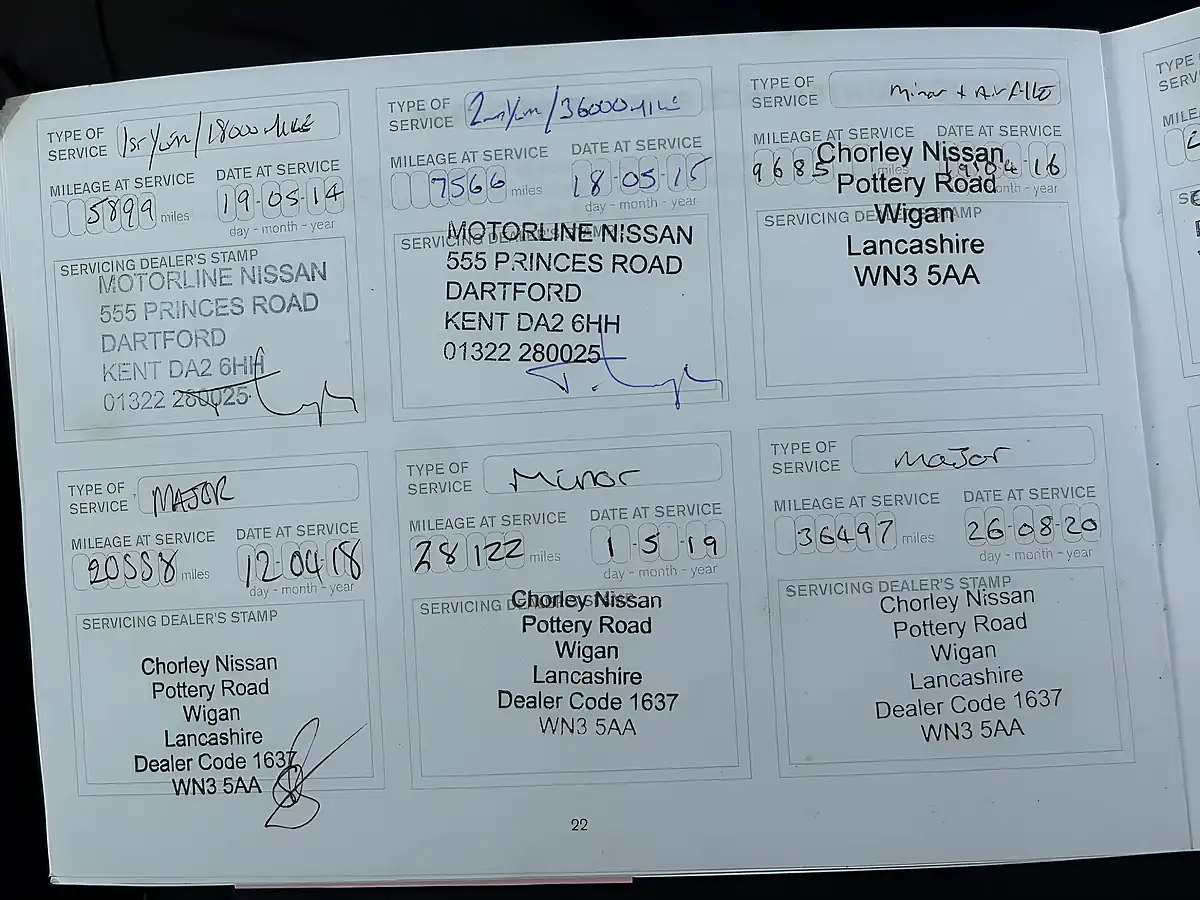 TYPE OF SERVICE 1st Year/18000 Mile
MILEAGE AT SERVICE DATE AT SERVICE
5899 miles 19-05-14
day - month - year
SERVICING DEALER'S STAMP
MOTORLINE NISSAN
555 PRINCES ROAD
DARTFORD
KENT DA2 6HH
01322 280025
TYPE OF SERVICE 2nd Year/36000 Mile
MILEAGE AT SERVICE DATE AT SERVICE
7566 miles 18-05-15
day - month - year
SERVICING DEALER'S STAMP
MOTORLINE NISSAN
555 PRINCES ROAD
DARTFORD
KENT DA2 6HH
01322 280025
TYPE OF SERVICE Minor + Air Filter
MILEAGE AT SERVICE DATE AT SERVICE
9685 miles 19 04 16
month - year
SERVICING DEALER'S STAMP
Chorley Nissan
Pottery Road
Wigan
Lancashire
WN3 5AA
TYPE OF SERVICE MAJOR
MILEAGE AT SERVICE DATE AT SERVICE
20558 miles 12-04-18
day - month - year
SERVICING DEALER'S STAMP
Chorley Nissan
Pottery Road
Wigan
Lancashire
Dealer Code 1637
WN3 5AA
TYPE OF SERVICE Minor
MILEAGE AT SERVICE DATE AT SERVICE
28122 miles 1-5-19
day - month - year
SERVICING DEALER'S STAMP
Chorley Nissan
Pottery Road
Wigan
Lancashire
Dealer Code 1637
WN3 5AA
TYPE OF SERVICE Major
MILEAGE AT SERVICE DATE AT SERVICE
36497 miles 26-08-20
day - month - year
SERVICING DEALER'S STAMP
Chorley Nissan
Pottery Road
Wigan
Lancashire
Dealer Code 1637
WN3 5AA
22